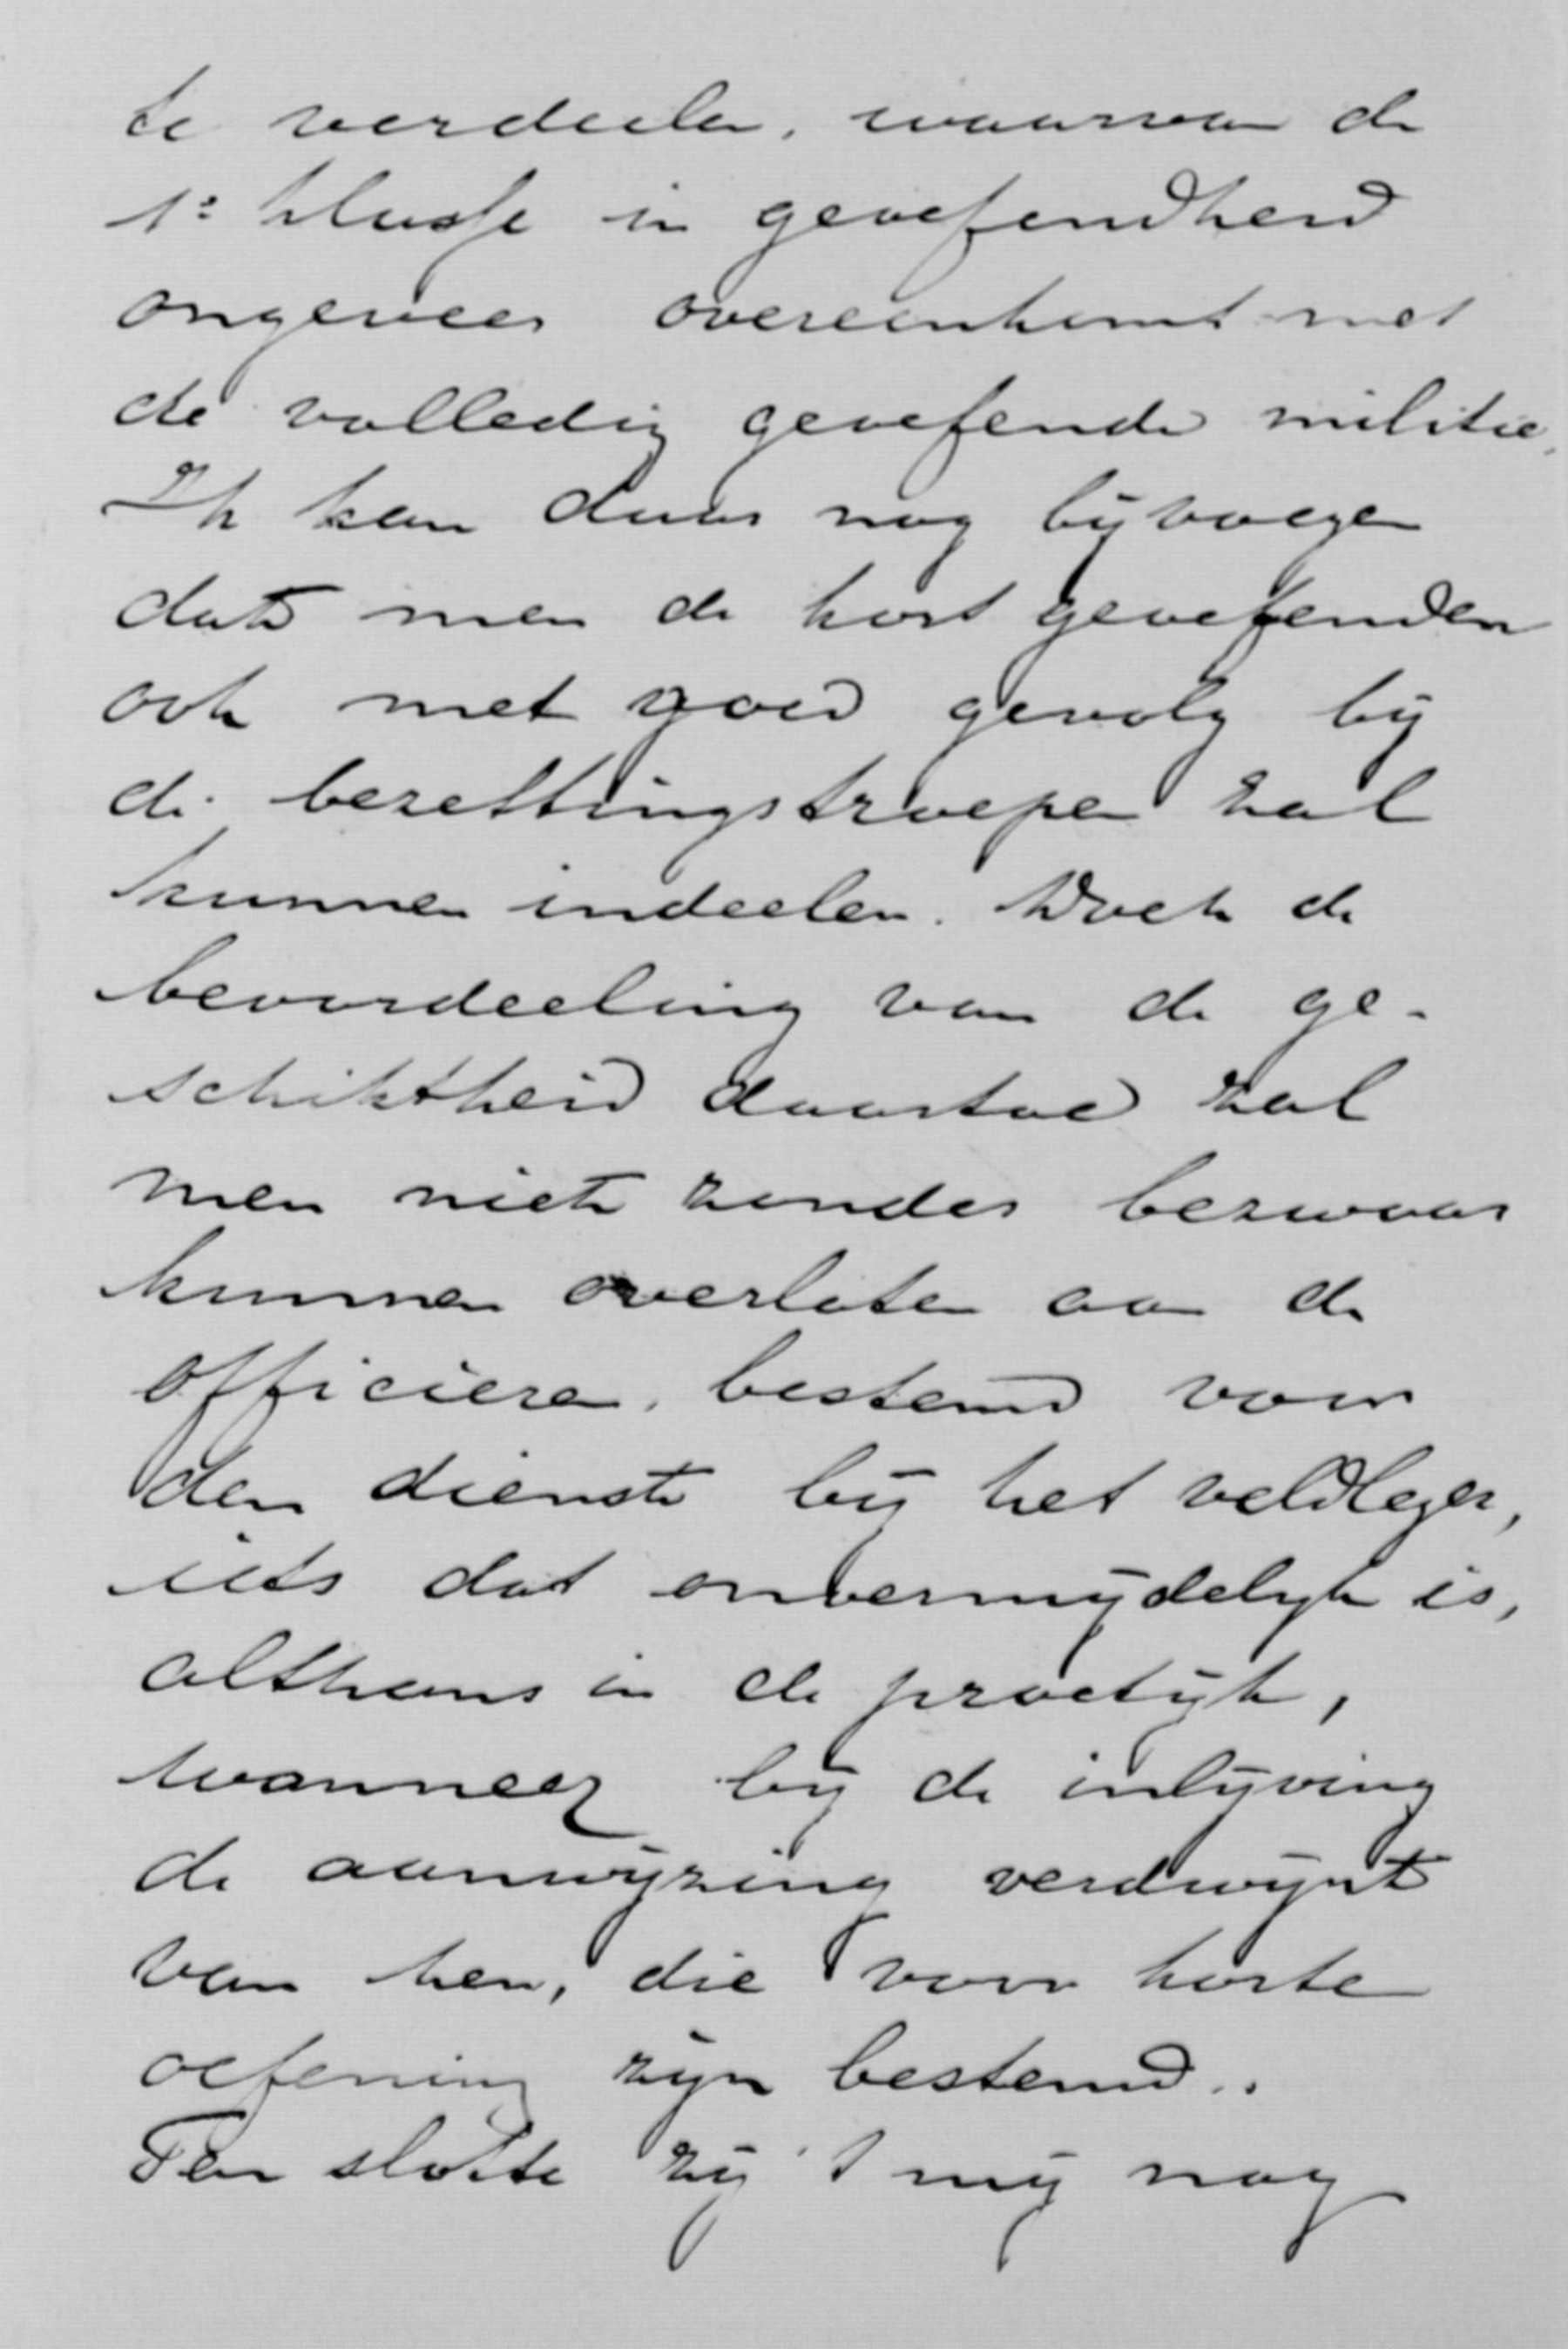 te verdeelen, waarvan de
1e klasse in geoefendheid
ongeveer overeenkomt met
de volledig geoefende militie.
Ik kan daar nog bijvoegen
dat men de kort geoefenden
ook met goed gevolg bij
de bezettingstroepen zal
kunnen indeelen. Doch de
beoordeeling van de ge-
schiktheid daartoe zal
men niet zonder bezwaar
kunnen overlaten aan de
officieren, bestemd voor
den dienst bij het veldleger,
iets dat onvermijdelijk is,
althans in de practijk,
wanneer bij de inlijving
de aanwijzing verdwijnt
van hen, die voor korte
oefening zijn bestemd.
Ten slotte zij 't mij nog